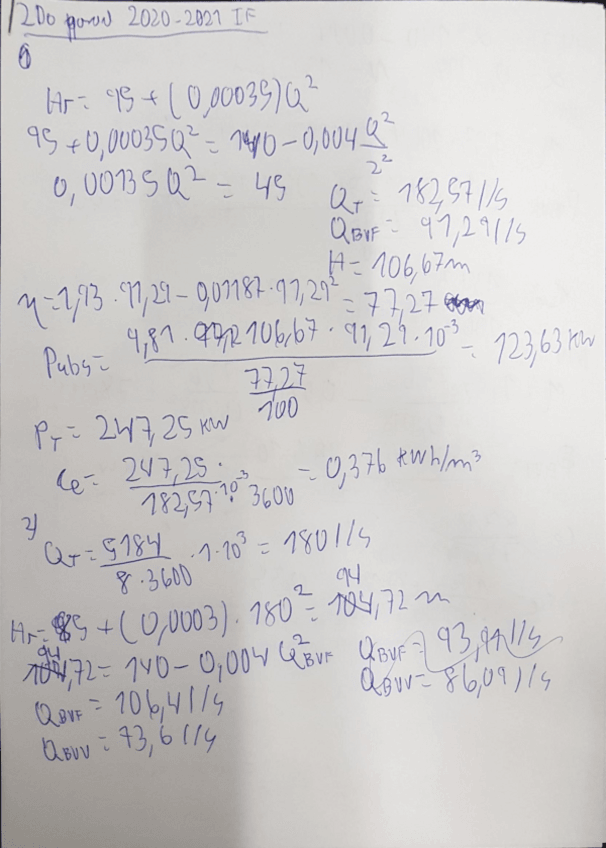 2Do 2020-2021 IF
1
Hr = 95 + (0,00035)Q²
95 + 0,00035Q² = 140 - 0,004 Q²/2²
0,00135Q² = 45
QT = 182,57 l/s
QBVF = 91,29 l/s
H = 106,67m
η = 1,93 · 91,29 - 0,01187 · 91,29² = 77,27
Pabs = 9,81 · 106,67 · 91,29 · 10⁻³ / (77,27/100) = 123,63 kW
PT = 247,25 kW
Ce = 247,25 / (182,57 · 10⁻³ · 3600) = 0,376 kWh/m³
2)
QT = 5184 / (8 · 3600) · 1 · 10³ = 180 l/s
Hr = 85 + (0,0003) · 180² = 94,72 m
94,72 = 140 - 0,004 Q²BVF
QBVF = 106,4 l/s
QBVV = 73,6 l/s
QBVF = 93,91 l/s
QBVV = 86,09 l/s